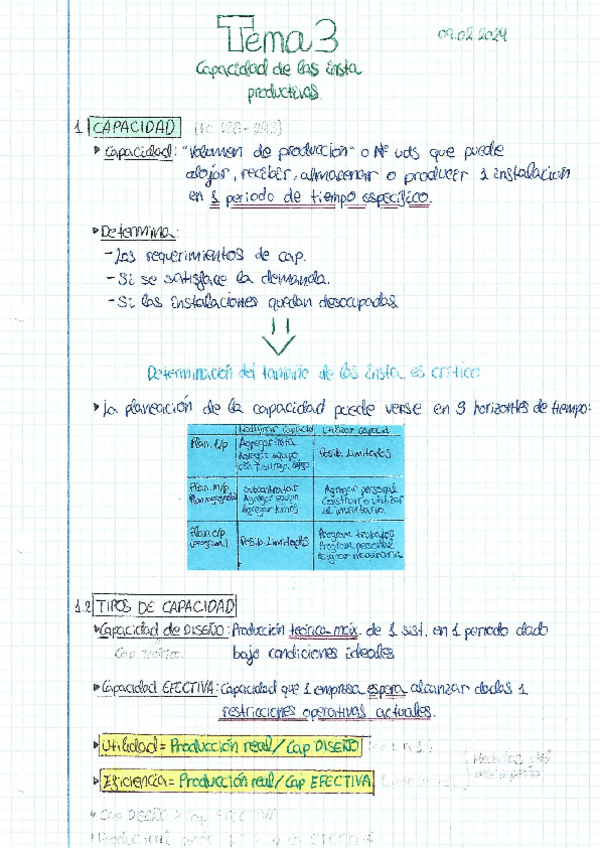 Tema 3
09.02.2024
Capacidad de las insta
productivas.
1 CAPACIDAD
▸ Capacidad: "Volumen de producción" o Nº uds que puede
alojar, recibir, almacenar o producir 1 instalación
en 1 periodo de tiempo específico.
▸ Determina:
- Los requerimientos de cap.
- Si se satisface la demanda.
- Si las instalaciones quedan desocupadas
Determinación del tamaño de las insta. es crítico
▸ La planeación de la capacidad puede verse en 3 horizontes de tiempo:
Modificar capacid. Utilizar capacid.
Plan. l/p Agregar insta Posib. Limitadas
Agregar equipo
Plan. m/p Subcontratar Agregar personal
Agregar equipo Construir o utilizar
Agregar turnos el inventario
Plan c/p Posib. Limitadas Program. trabajos
(program.) Program. personal
Asignar maquinaria
1.2 TIPOS DE CAPACIDAD
▸ Capacidad de DISEÑO: Producción teórica máx. de 1 sist. en 1 periodo dado
Cap teórica bajo condiciones ideales
▸ Capacidad EFECTIVA: Capacidad que 1 empresa espera alcanzar dadas 1
restricciones operativas actuales.
▸ Utilidad = Producción real / Cap DISEÑO
Medidas del
▸ Eficiencia = Producción real / Cap EFECTIVA
▸ Cap DISEÑO > Cap EFECTIVA